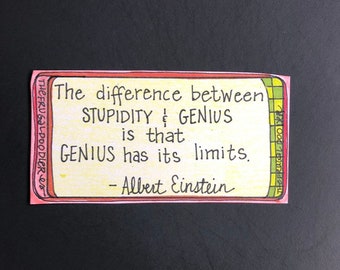 The difference between
STUPIDITY & GENIUS
is that
GENIUS has its limits.
- Albert Einstein